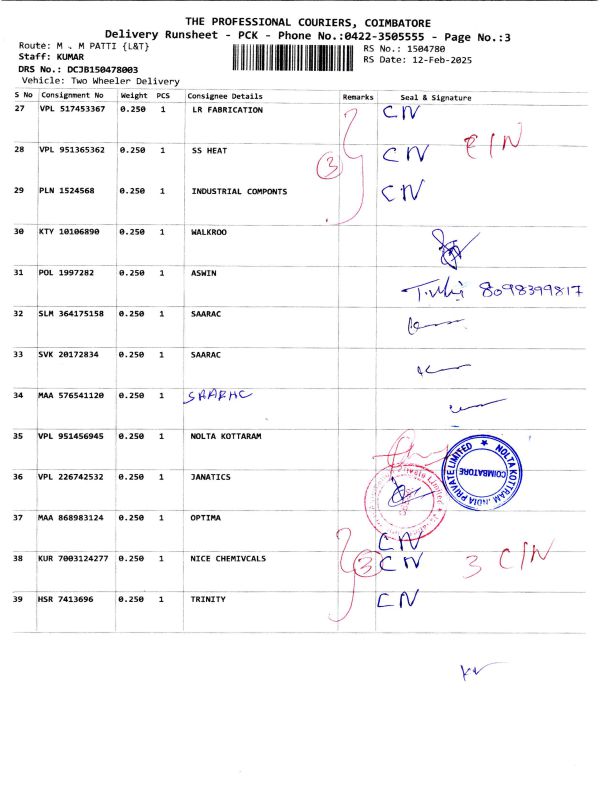 THE PROFESSIONAL COURIERS, COIMBATORE
Delivery Runsheet - PCK - Phone No.:0422-3505555 - Page No.:3
Route: M . M PATTI {L&T}
RS No.: 1504780
Staff: KUMAR
RS Date: 12-Feb-2025
DRS No.: DCJB150478003
Vehicle: Two Wheeler Delivery
S No Consignment No Weight PCS Consignee Details Remarks Seal & Signature
27 VPL 517453367 0.250 1 LR FABRICATION CN
28 VPL 951365362 0.250 1 SS HEAT 3 CN C/N
29 PLN 1524568 0.250 1 INDUSTRIAL COMPONTS CN
30 KTY 10106890 0.250 1 WALKROO
31 POL 1997282 0.250 1 ASWIN 8098399817
32 SLM 364175158 0.250 1 SAARAC
33 SVK 20172834 0.250 1 SAARAC
34 MAA 576541120 0.250 1 SAARHC
35 VPL 951456945 0.250 1 NOLTA KOTTARAM
NOLTA KOTTRAM INDIA PRIVATE LIMITED ★
COIMBATORE
36 VPL 226742532 0.250 1 JANATICS
Private Limited
37 MAA 868983124 0.250 1 OPTIMA CN
38 KUR 7003124277 0.250 1 NICE CHEMIVCALS 3 CN 3 C/N
39 HSR 7413696 0.250 1 TRINITY CN